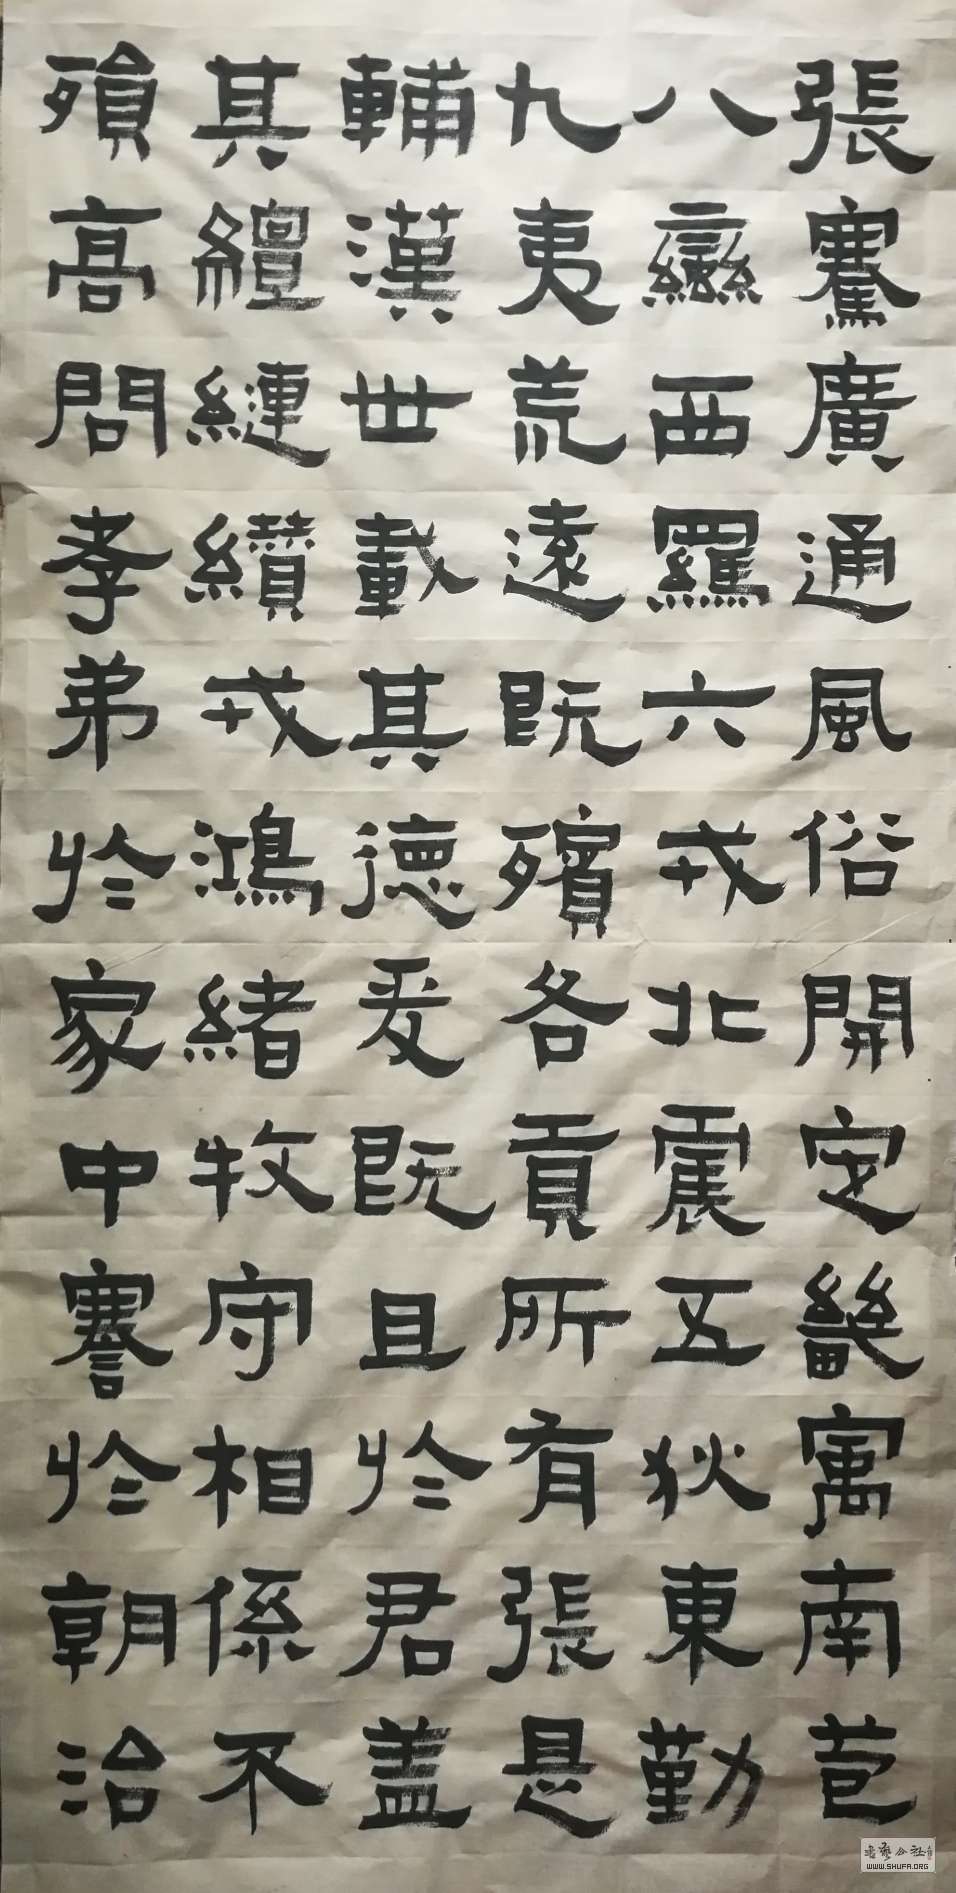 張騫廣通風俗開定畿㝢南苞
八蠻西羈六戎北震五狄東勤
九夷荒遠既殯各貢所有張是
輔漢世載其德爰既且於君蓋
其繵縺纘戎鴻緒牧守相係不
殞高問孝弟於家中謇於朝治
WWW.SHUFA.ORG